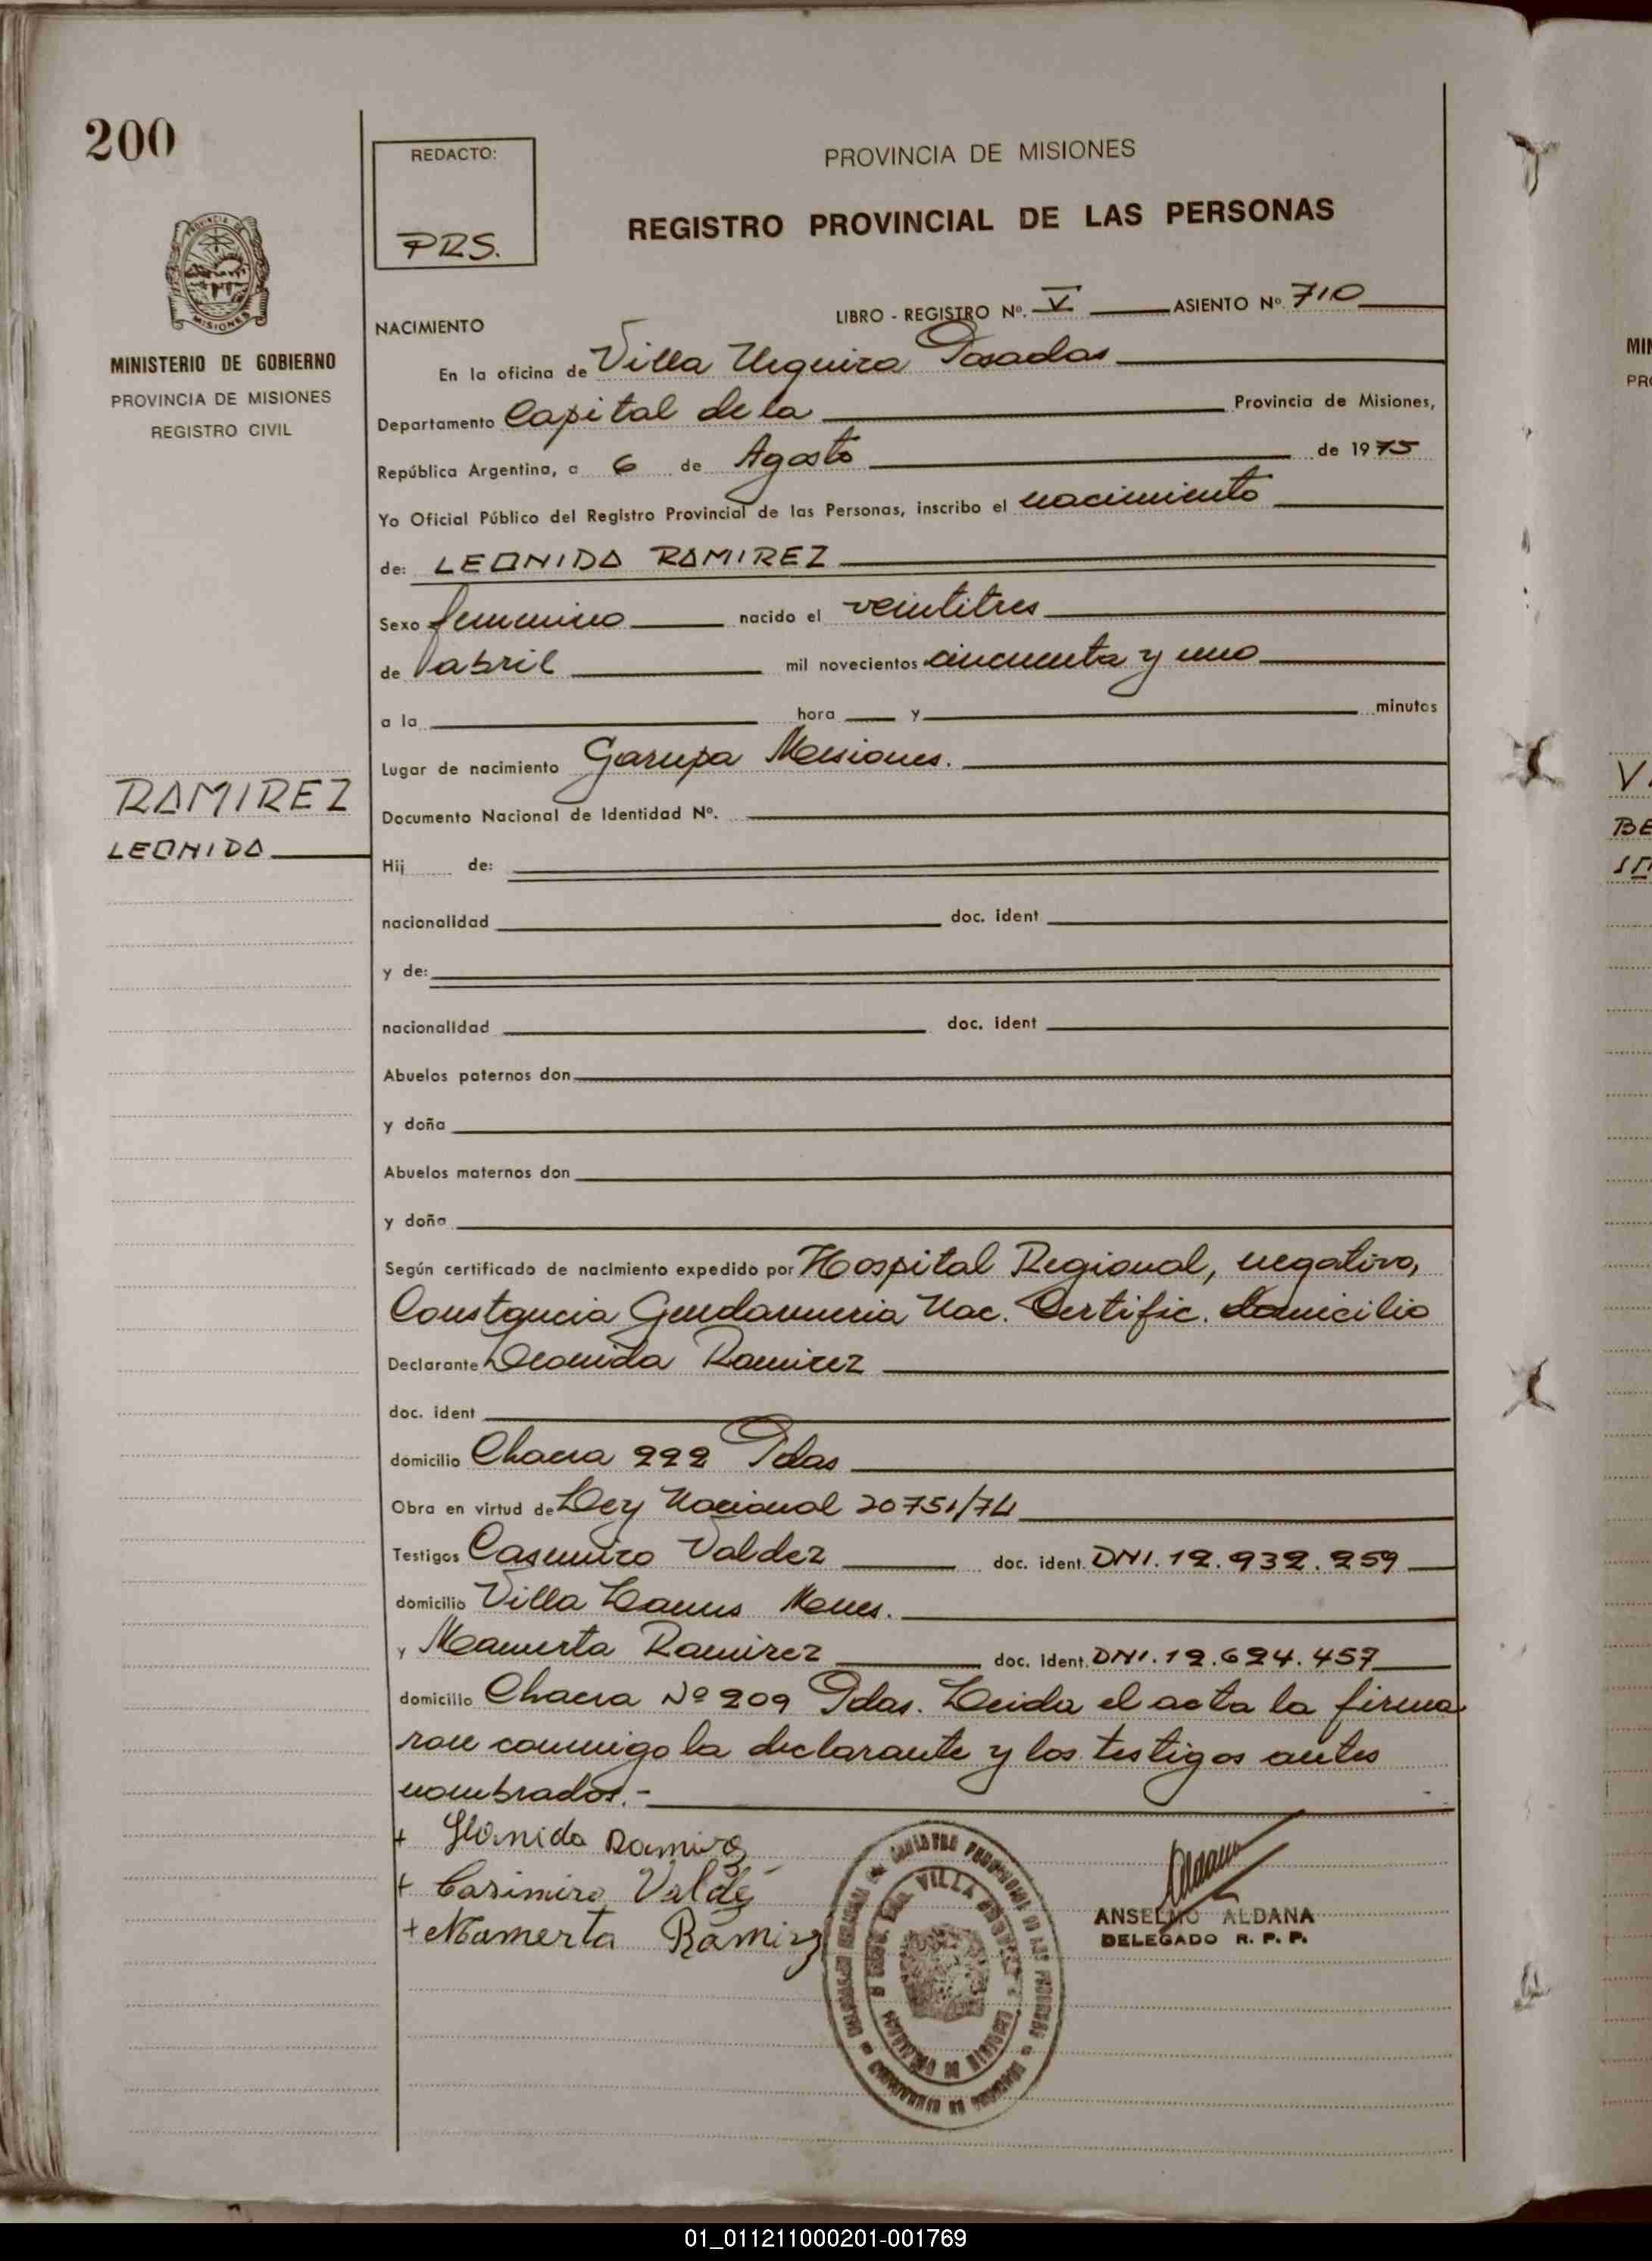 200
REDACTO:
PRS.
PROVINCIA DE MISIONES
REGISTRO PROVINCIAL DE LAS PERSONAS
PROVINCIA DE
MISIONES
MINISTERIO DE GOBIERNO
PROVINCIA DE MISIONES
REGISTRO CIVIL
LIBRO - REGISTRO Nº. V ASIENTO Nº. 710
NACIMIENTO
En la oficina de Villa Urquiza Posadas
Departamento Capital de la Provincia de Misiones,
República Argentina, a 6 de Agosto de 1975
Yo Oficial Público del Registro Provincial de las Personas, inscribo el nacimiento
de: LEONIDA RAMIREZ
Sexo femenino nacido el veintitres
de abril mil novecientos cincuenta y uno
a la hora y minutos
Lugar de nacimiento Garupa Misiones.
RAMIREZ
LEONIDA
Documento Nacional de Identidad Nº.
Hij de:
nacionalidad doc. ident
y de:
nacionalidad doc. ident
Abuelos paternos don
y doña
Abuelos maternos don
y doña
Según certificado de nacimiento expedido por Hospital Regional, negativo,
Constancia Gendarmeria Nac. Certific. domicilio
Declarante Leonida Ramirez
doc. ident
domicilio Chacra 222 Pdas
Obra en virtud de Ley Nacional 20751/74
Testigos Casimiro Valdez doc. ident. DNI. 12.932.259
domicilio Villa Lanus Mnes.
y Mamerta Ramirez doc. ident. DNI. 12.624.457
domicilio Chacra Nº 209 Pdas. Leida el acta la firma
ron conmigo la declarante y los testigos antes
nombrados.-
+ Leonida Ramirez
+ Casimiro Valdez
+ Mamerta Ramirez
Aldana
ANSELMO ALDANA
DELEGADO R. P. P.
01_011211000201-001769